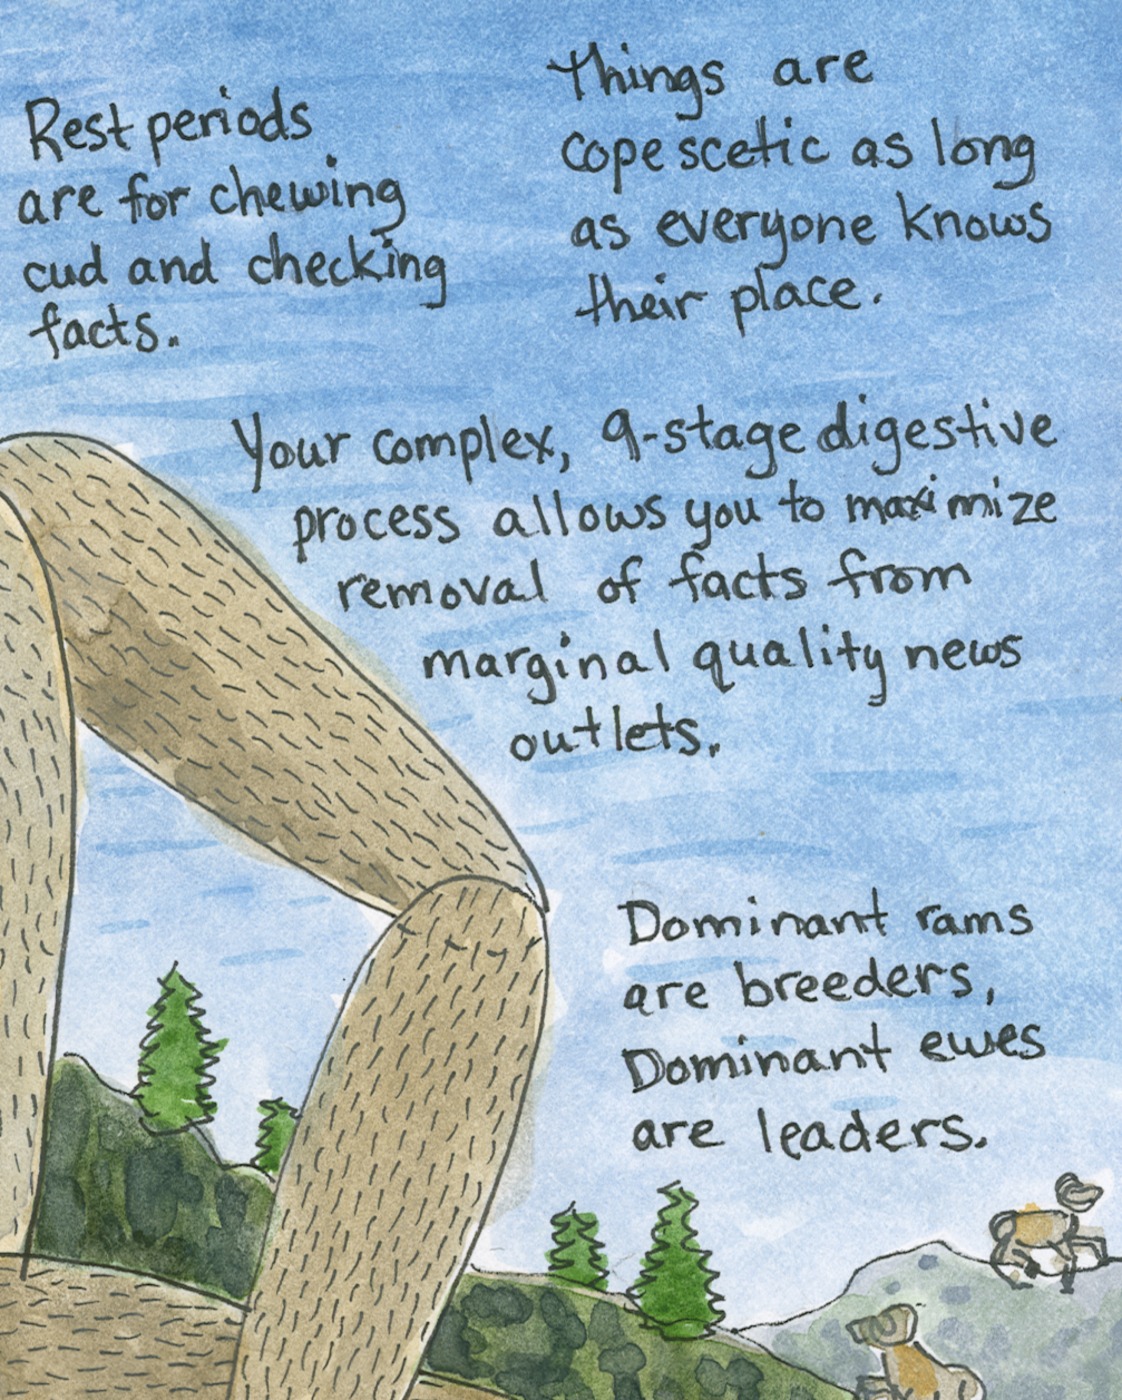 Rest periods
are for chewing
cud and checking
facts.
Things are
copescetic as long
as everyone knows
their place.
Your complex, 9-stage digestive
process allows you to maximize
removal of facts from
marginal quality news
outlets.
Dominant rams
are breeders,
Dominant ewes
are leaders.